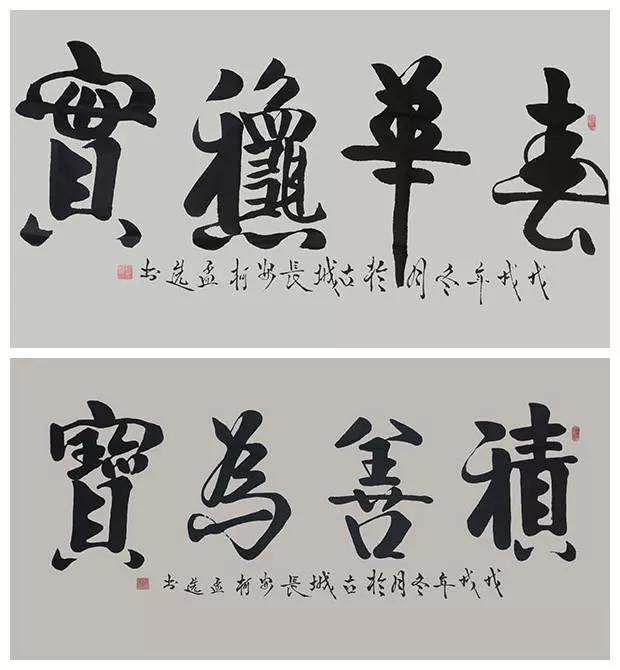 春華龝實
戊戌年冬月於古城長安柯孟选书
積善為寶
戊戌年冬月於古城長安柯孟选书